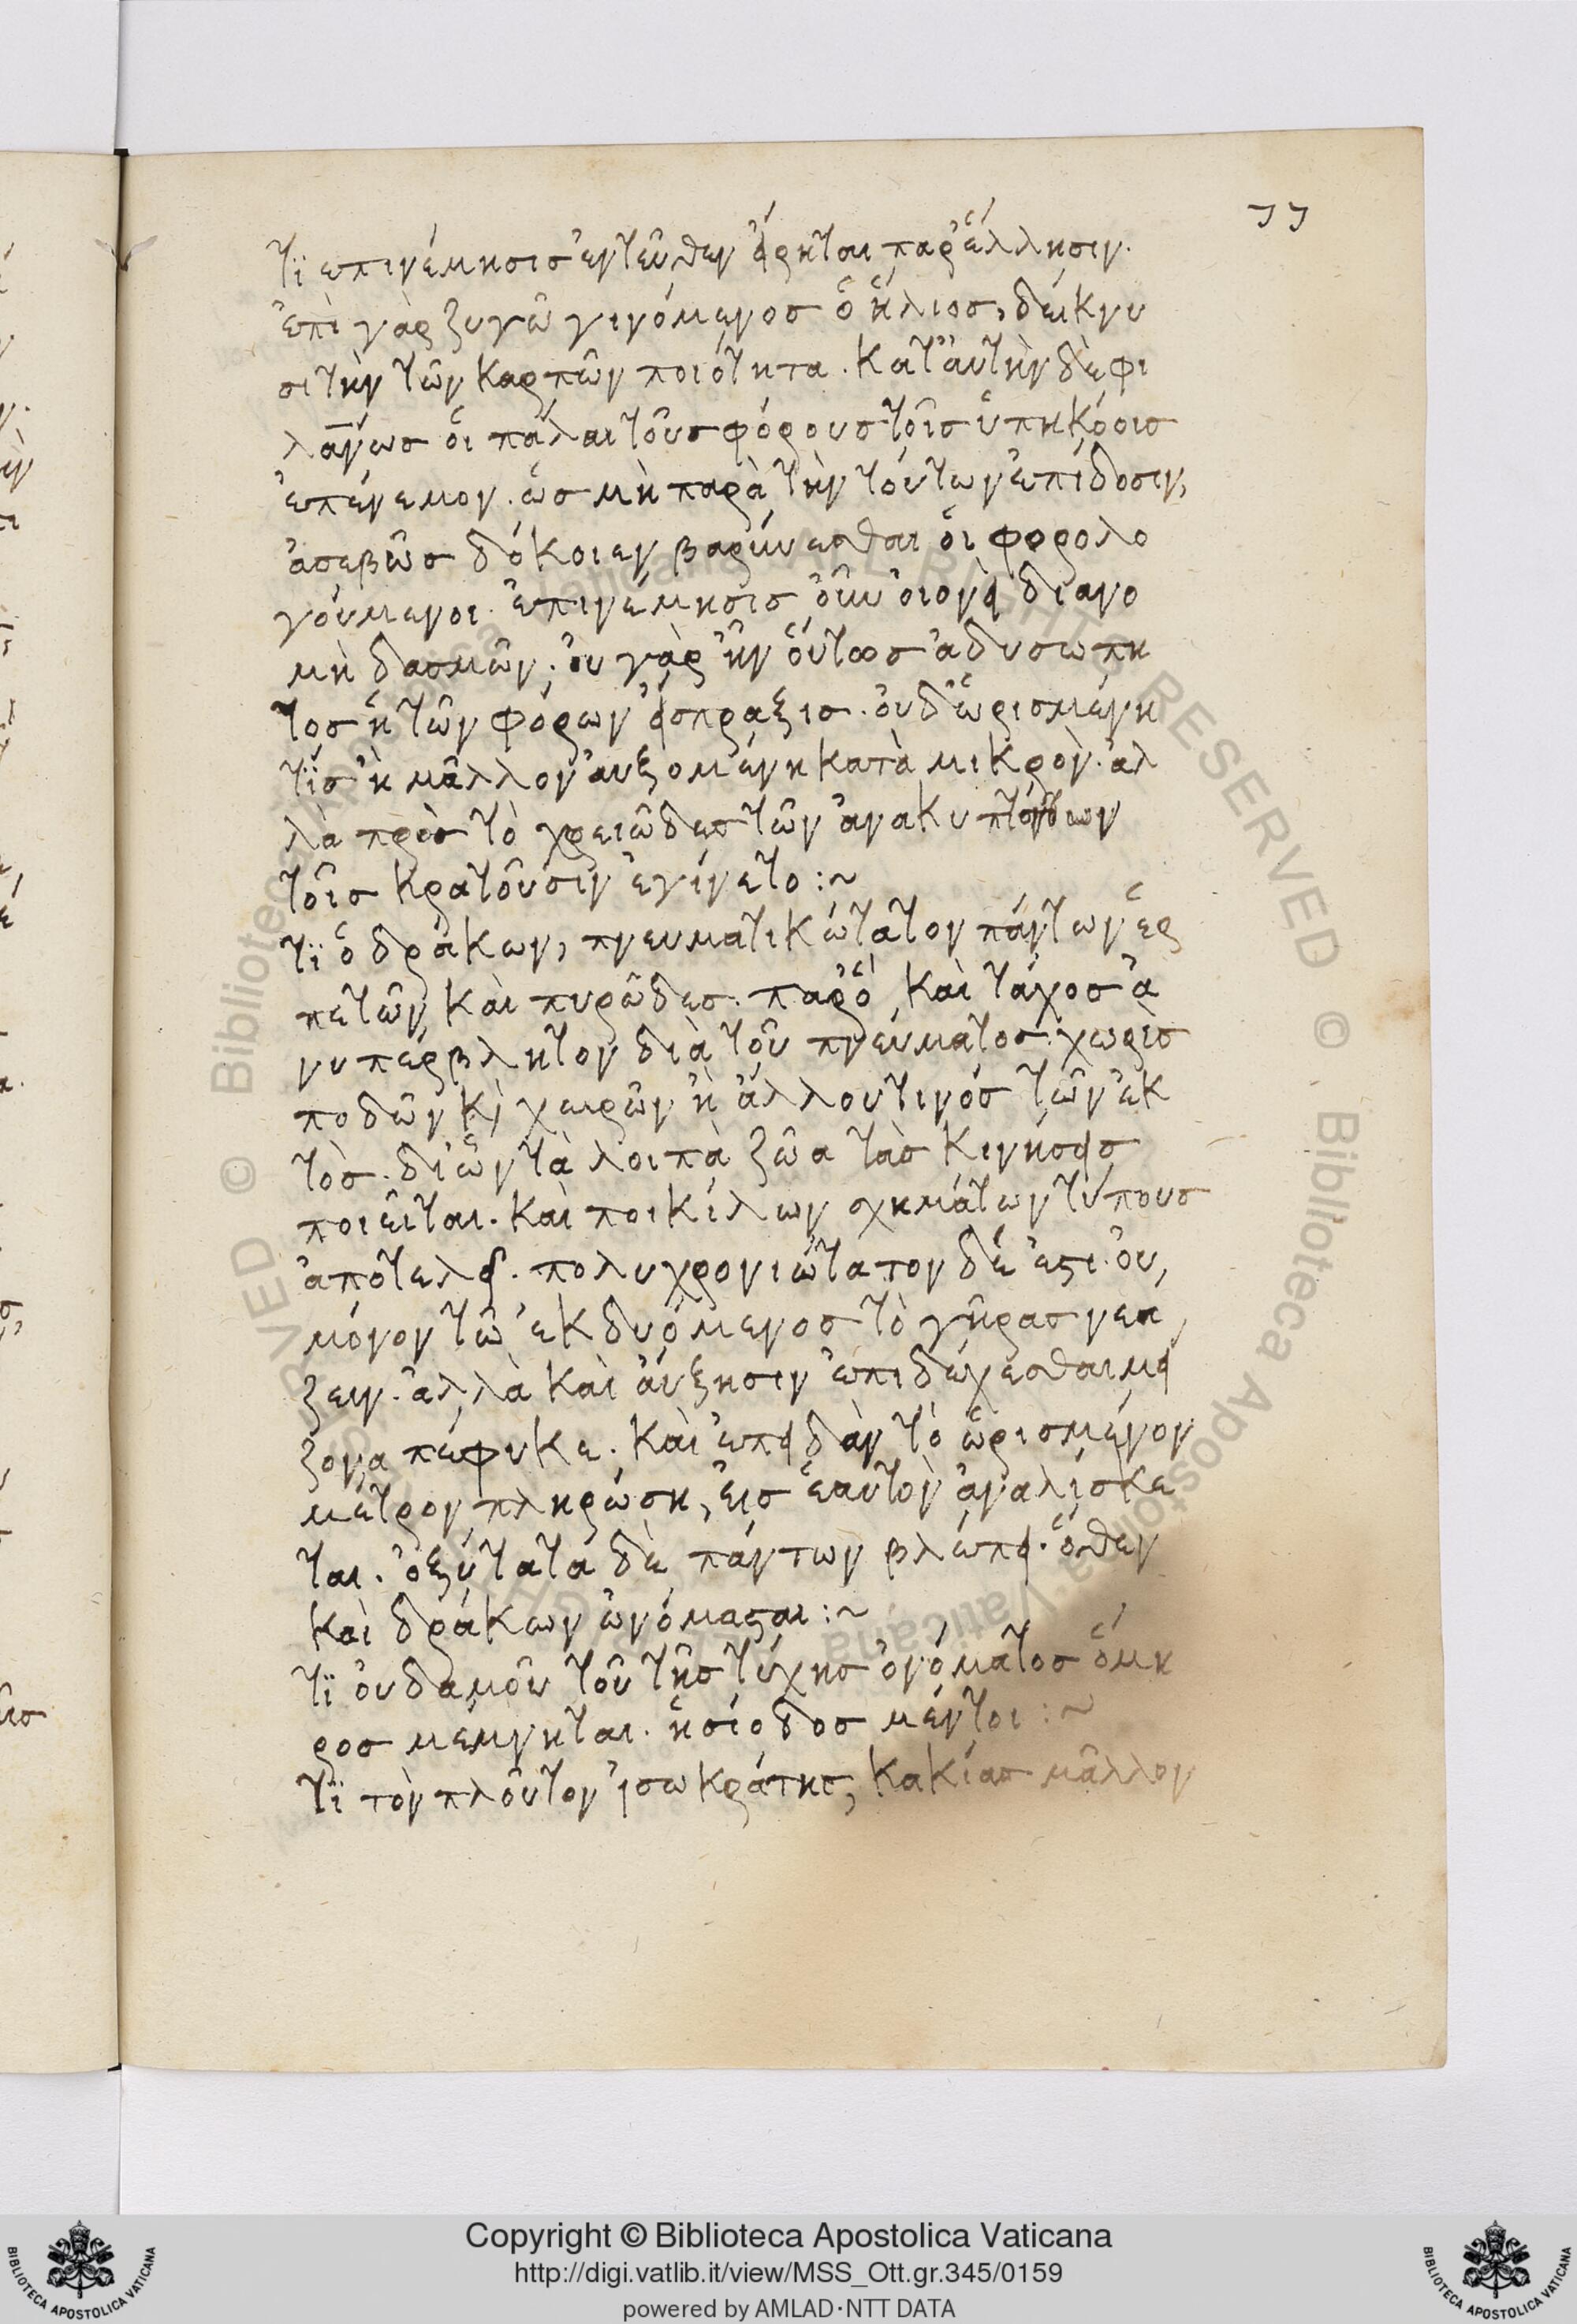 77
τϊ ἐπινέμησισ ἐντεῦθεν εἴρηται παρ' ἕλλησιν.
ἐπὶ γὰρ ζυγῶ γινόμενοσ ὁ ἥλιοσ, δείκνυ
σι τὴν τῶν καρπῶν ποιότητα. κατ' αὐτὴν δὲ φι
λάνωσ οἱ πάλαι τοὺσ φόρουσ τοῖσ ὑπηκόοισ
ἐπένεμον. ὡσ μὴ παρὰ τὴν τούτων ἐπίδοσιν,
ἀσεβῶσ δόκοιεν βαρύνεσθαι οἱ φορολο
γούμενοι. ἐπινέμησισ οὖν οἱονεὶ διανο
μὴ δασμῶν. οὐ γὰρ ἦν οὕτωσ ἀδυσώπη
τοσ ἡ τῶν φόρων εἴσπραξισ. οὐδ' ὡρισμένη
τὶσ ἢ μᾶλλον αὐξομένη κατὰ μικρὸν. ἀλ
λὰ πρὸσ τὸ χρειῶδεσ τῶν ἀνακυπτόντων
τοῖσ κρατοῦσιν ἐγίνετο :~
τϊ ὁ δράκων, πνευματικώτατον πάντων ἑρ
πετῶν καὶ πυρῶδεσ. παρ' ὃ καὶ τάχοσ ἀ
νυπέρβλητον διὰ τοῦ πνεύματοσ χωρὶσ
ποδῶν κ̀ χειρῶν ἢ ἄλλου τινόσ τῶν ἐκ
τὸσ. δι' ὧν τὰ λοιπὰ ζῶα τὰσ κινήσεισ
ποιεῖται. καὶ ποικίλων σχημάτων τύπουσ
ἀποτελεῖ. πολυχρονιώτατον δέ ἐστι. οὐ,
μόνον τῶ ἐκδυόμενοσ τὸ γῆρασ νεά,
ζειν. ἀλλὰ καὶ αὔξησιν ἐπιδέχεσθαι μεί
ζονα πέφυκε. καὶ ἐπειδὰν τὸ ὡρισμένον
μέτρον πληρώση, εἰσ ἑαυτὸν ἀναλίσκε
ται. ὀξύτατα δὲ πάντων βλέπει. ὅθεν
καὶ δράκων ὠνόμασται :~
τϊ οὐδαμοῦ τοῦ τῆσ τύχησ ὀνόματοσ ὅμη
ροσ μέμνηται. ἡσίοδοσ μέντοι :~
τϊ τὸν πλοῦτον ἰσωκράτησ, κακίασ μᾶλλον
Copyright © Biblioteca Apostolica Vaticana
http://digi.vatlib.it/view/MSS_Ott.gr.345/0159
powered by AMLAD·NTT DATA